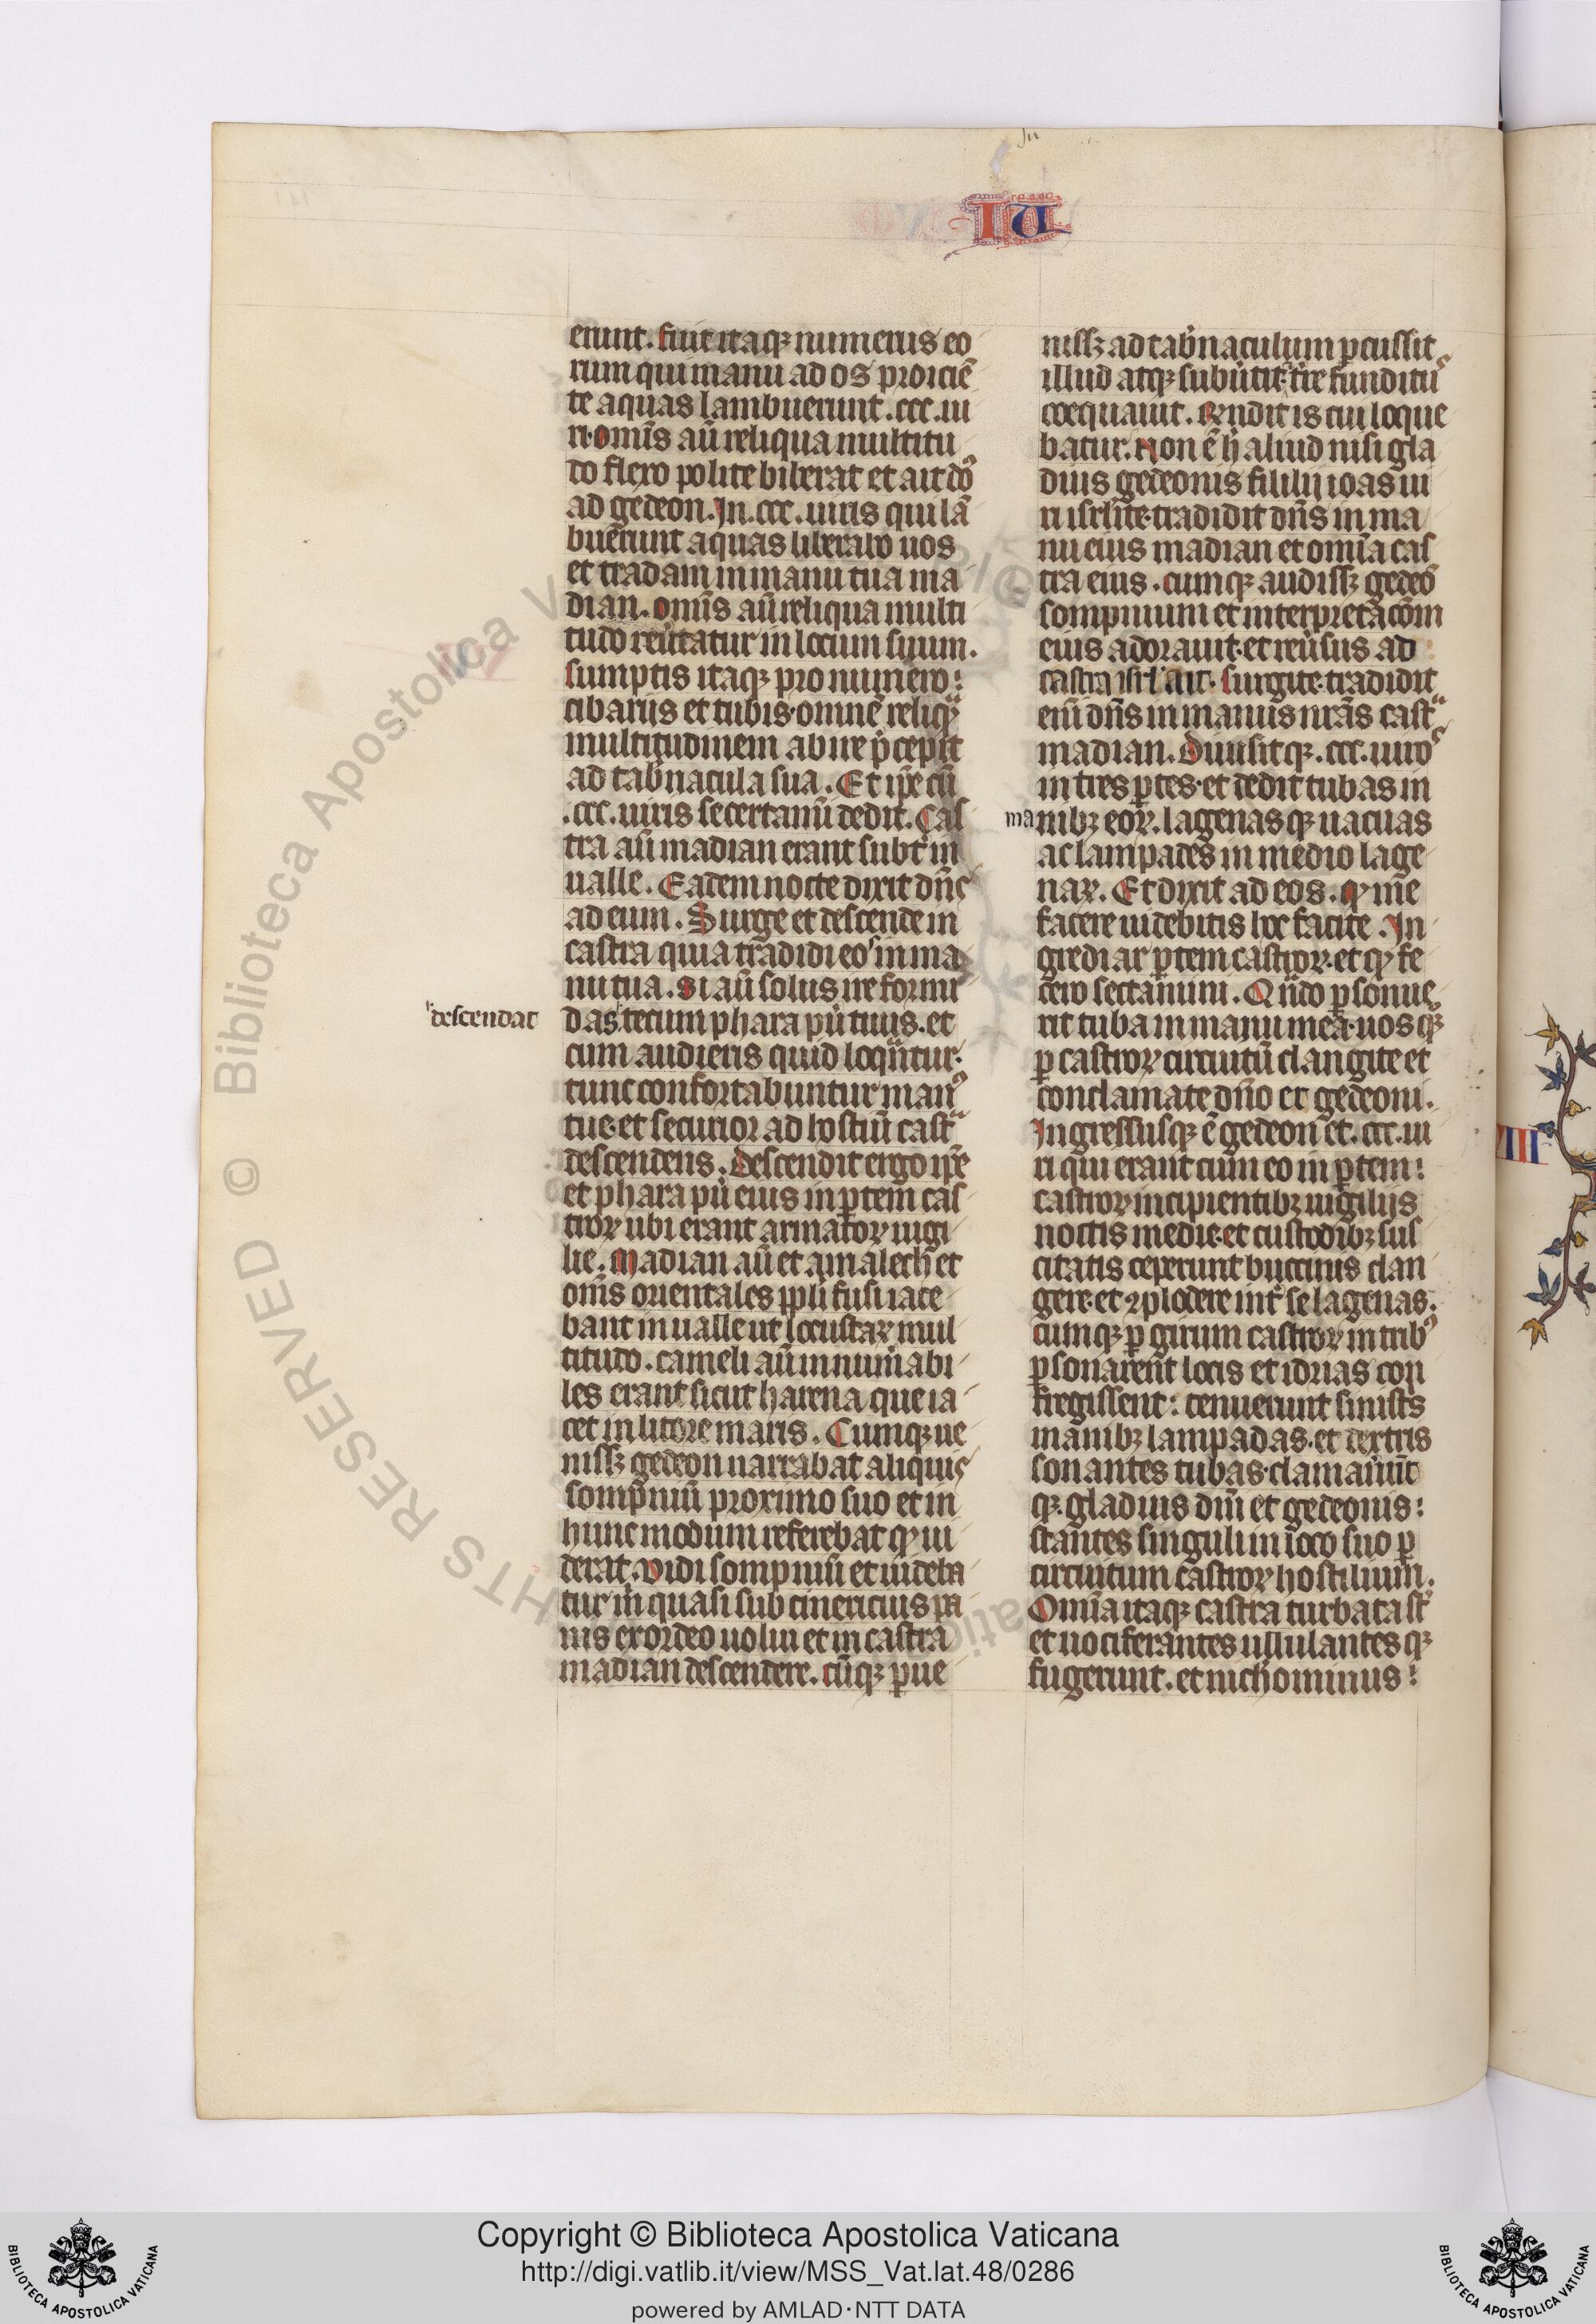 IU
erunt. fuit itaqꝫ numerus eo
rum qui manu ad os proiciē
te aquas lambuerunt .ccc. ui
ri. omīs aū reliqua multitu
do flexo poplite biberat et ait dn̄s
ad gedeon. In .ccc. uiris qui lā
buerunt aquas liberabo uos
et tradam in manu tua ma
dian. omīs aū reliqua multi
tudo reūtatur in locum suum.
sumptis itaqꝫ pro numero:
cibarijs et tubis. omnē reliquā
multitudinem abire p̄cepit
ad tab̄nacula sua. Et ip̄e cū
.ccc. uiris se certami dedit. Cas
tra aū madian erant subt̄ in
ualle. Eadem nocte dixit dn̄s
ad eum. Surge et descende in
castra quia tradidi eos in ma
nu tua. si aū solus ire formi
das descendat tecum phara pu̇ tuus. et
cum audieris quid loquātur.
tunc confortabuntur manꝰ
tue. et securior ad hostiū castᵃ
descendens. descendit ergo ip̄e
et phara pu̇ eius in ꝑtem cas
troꝝ ubi erant armatoꝝ uigi
lie. Madian aū et amalech et
om̄s orientales pp̄li fusi iace
bant in ualle ut locustaꝝ mul
titudo. cameli aū innum̄abi
les erant sicut harena que ia
cet in litore maris. Cumqꝫ ue
nissꝫ gedeon narrabat aliquis
sompniū proximo suo et in
hunc modum referebat qͥ ui
derat. Vidi sompniū et uideba
tur m̄ quasi subcinericius pa
nis ex ordeo uolui et in castra
madian descendere. cūqꝫ ꝑue
nissꝫ ad tab̄naculum ꝑcussit
illud atqꝫ subūtit. et t̄re funditꝰ
coequauit. Rn̄dit is cui loque
batur. Non ē h̄ aliud nisi gla
dius gedeonis filii ioas ui
ri isrl̄ite. tradidit dn̄s in ma
nu eius madian et omīa cas
tra eius. cumqꝫ audissꝫ gedeō
sompnium et interpretac̄om
eius adorauit. et reūsus ad
castra isrl̄ ait. surgite. tradidit
enī dn̄s in manus nr̄as castᵃ
madian. Diuisitqꝫ .ccc. uirꝰ
in tres ꝑtes. et dedit tubas in
manibꝫ eoꝝ. lagenasqꝫ uacuas
ac lampades in medio lage
naꝝ. Et dixit ad eos. qͥ me
facere uidebitis hoc facite. In
grediar ꝑtem castroꝝ. et qͥ fe
cero sectamini. Qn̄do ꝑsonue
rit tuba in manu mea. uos qꝫ
ꝑ castroꝝ circuitū clangite et
conclamate dn̄o et gedeoni.
Ingressusqꝫ ē gedeon et .ccc. ui
ri qui erant cum eo in ꝑtem:
castroꝝ incipientibꝫ uigilijs
noctis medie. et custodibꝫ sus
citatis ceperunt buccinis clan
gere. et ꝯplodere int̄ se lagenas.
cumqꝫ ꝑ girum castroꝝ in tribꝰ
ꝑsonarent locis et idrias con
fregissent: tenuerunt sinist̄s
manibꝫ lampadas. et dextris
sonantes tubas. clamauūt
qꝫ. gladius dn̄i et gedeonis:
stantes singuli in loco suo ꝑ
circuitum castroꝝ hostilium.
Omīa itaqꝫ castra turbata st̄
et uociferantes ullulantesqꝫ
fugerunt. et nichominus:
VIII
© Biblioteca Apostolica
RESERVED
Copyright © Biblioteca Apostolica Vaticana
http://digi.vatlib.it/view/MSS_Vat.lat.48/0286
powered by AMLAD·NTT DATA
BIBLIOTECA APOSTOLICA VATICANA
BIBLIOTECA APOSTOLICA VATICANA